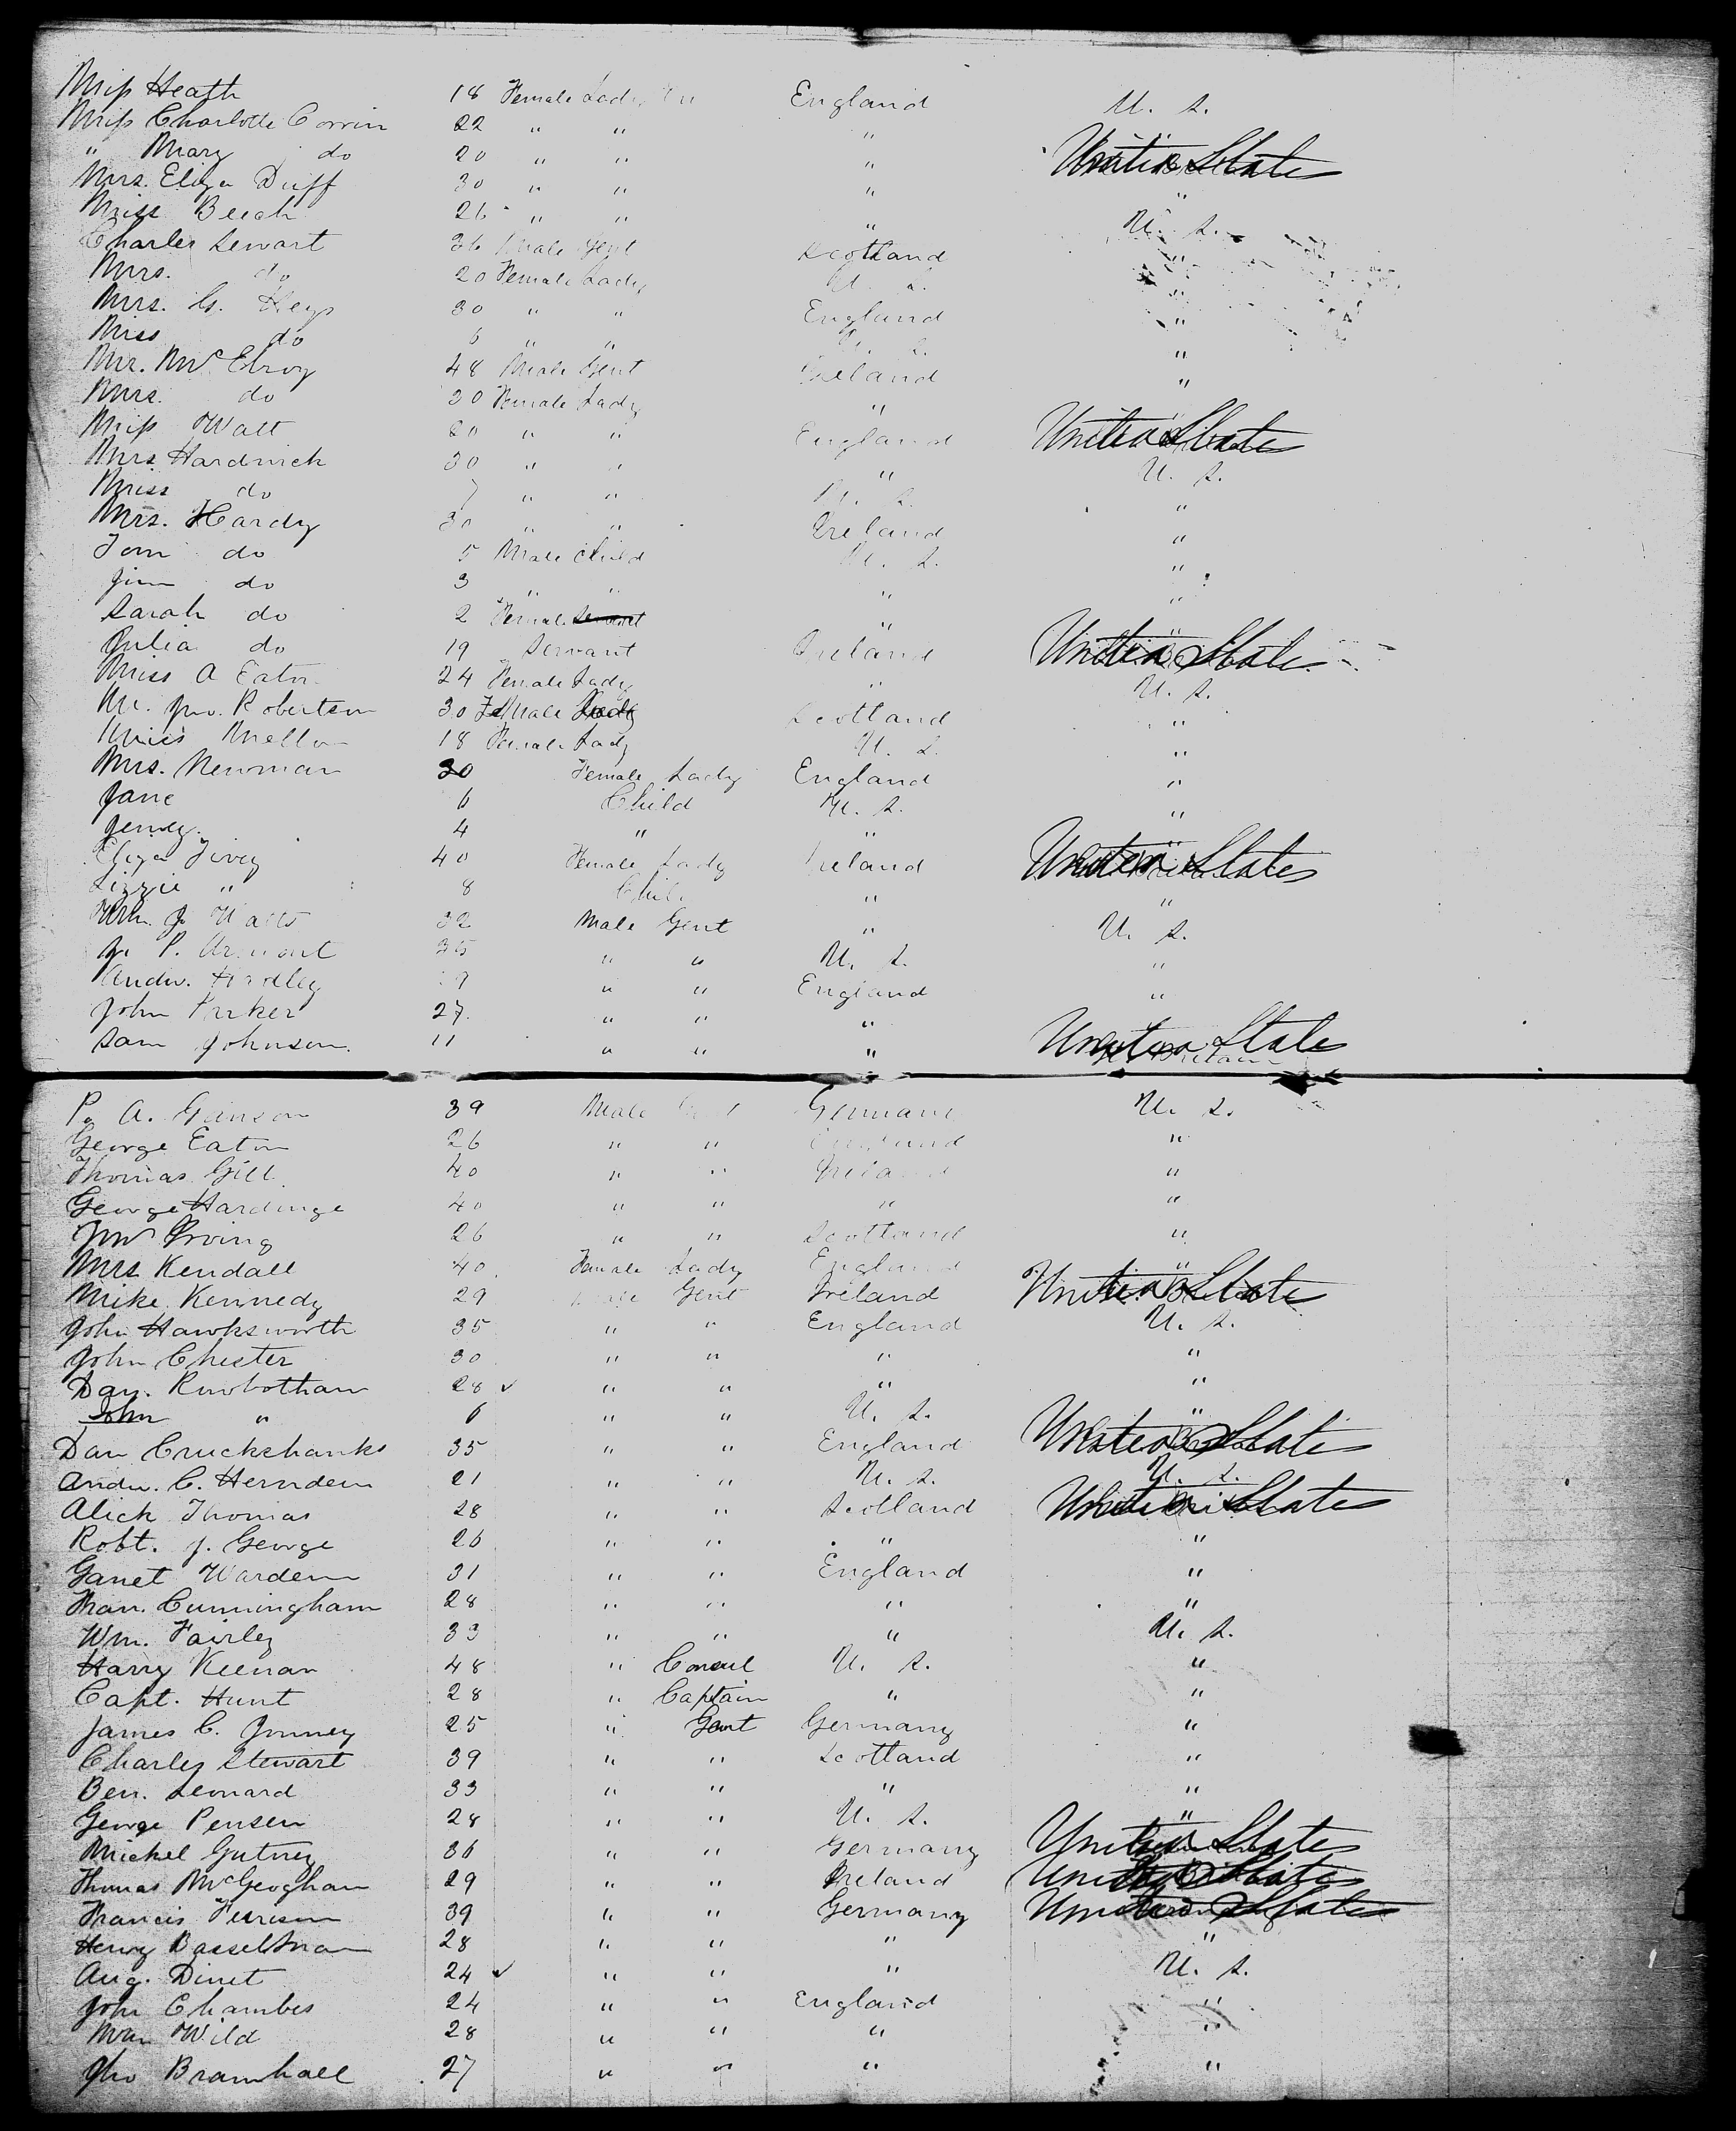 Miss Heath 18 Female Lady England U. S.
Miss Charlotte Corrin 22 " " " "
" Mary do 20 " " " United States
Mrs. Eliza Duff 30 " " " "
Miss Beech 26 " " " U. S.
Charles Sewart 36 Male Gent Scotland "
Mrs. do 20 Female Lady U. S. "
Mrs. G. Keys 30 " " England "
Miss do 6 " " U. S. "
Mr. McElroy 48 Male Gent Ireland "
Mrs. do 30 Female Lady " "
Miss Watt 20 " " England United States
Mrs Hardwick 30 " " " U. S.
Miss do 7 " " U. S. "
Mrs. Hardy 30 " " Ireland "
Tom do 5 Male Child U. S. "
Jim do 3 " " " "
Sarah do 2 Female Servant " "
Julia do 19 Servant Ireland United State
Miss A Eaton 24 Female Lady " U. S.
Mr. Jno. Robertson 30 Male Scotland "
Miss Mellon 18 Female Lady U. S. "
Mrs. Newman 30 Female Lady England "
Jane 6 Child U. S. "
Jenny. 4 " " "
Eliza 40 Female Lady Ireland United States
Lizzie " 8 Child " "
Wm. J Watts 32 Male Gent " U. S.
J. P. 35 " " U. S. "
Andw. Hardley 9 " " England "
John Parker 27. " " " "
Sam Johnson. 11 " " " United State
P. A. Ganson 39 Male Gent Germany U. S.
George Eaton 26 " " England "
Thomas Gill. 40 " " Ireland "
George Hardinge 40 " " " "
Jno Irving 26 " " Scotland "
Mrs Kendall 40 Female Lady England "
Mike Kennedy 29 Male Gent Ireland United State
John Hawksworth 35 " " England U. S.
John Chester 30 " " " "
Dan. Rowbotham 28 ✓ " " " "
John " 6 " " U. S. "
Dan Cruckshanks 35 " " England United States
Andw. C. Hernden 21 " " U. S. U. S.
Alick Thomas 28 " " Scotland United States
Robt. J. George 26 " " " "
Ganet Warden 31 " " England "
Fran. Cunningham 28 " " " "
Wm. Fairley 33 " " " U. S.
Harry Keenan 48 " Consul U. S. "
Capt. Hunt 28 " Captain " "
James C. 25 " Gent Germany "
Charles Stewart 39 " " Scotland "
Ben. Leonard 33 " " " "
George Pensen 28 " " U. S. "
Mickel Gutney 36 " " Germany United States
Thomas McGeogham 29 " " Ireland United States
Francis 39 " " Germany United States
Henry Basselman 28 " " " "
Aug. Dinet 24 ✓ " " " U. S.
John Chambes 24 " " England "
Wm Wild 28 " " " "
Jno Bramhall 27 " " " "